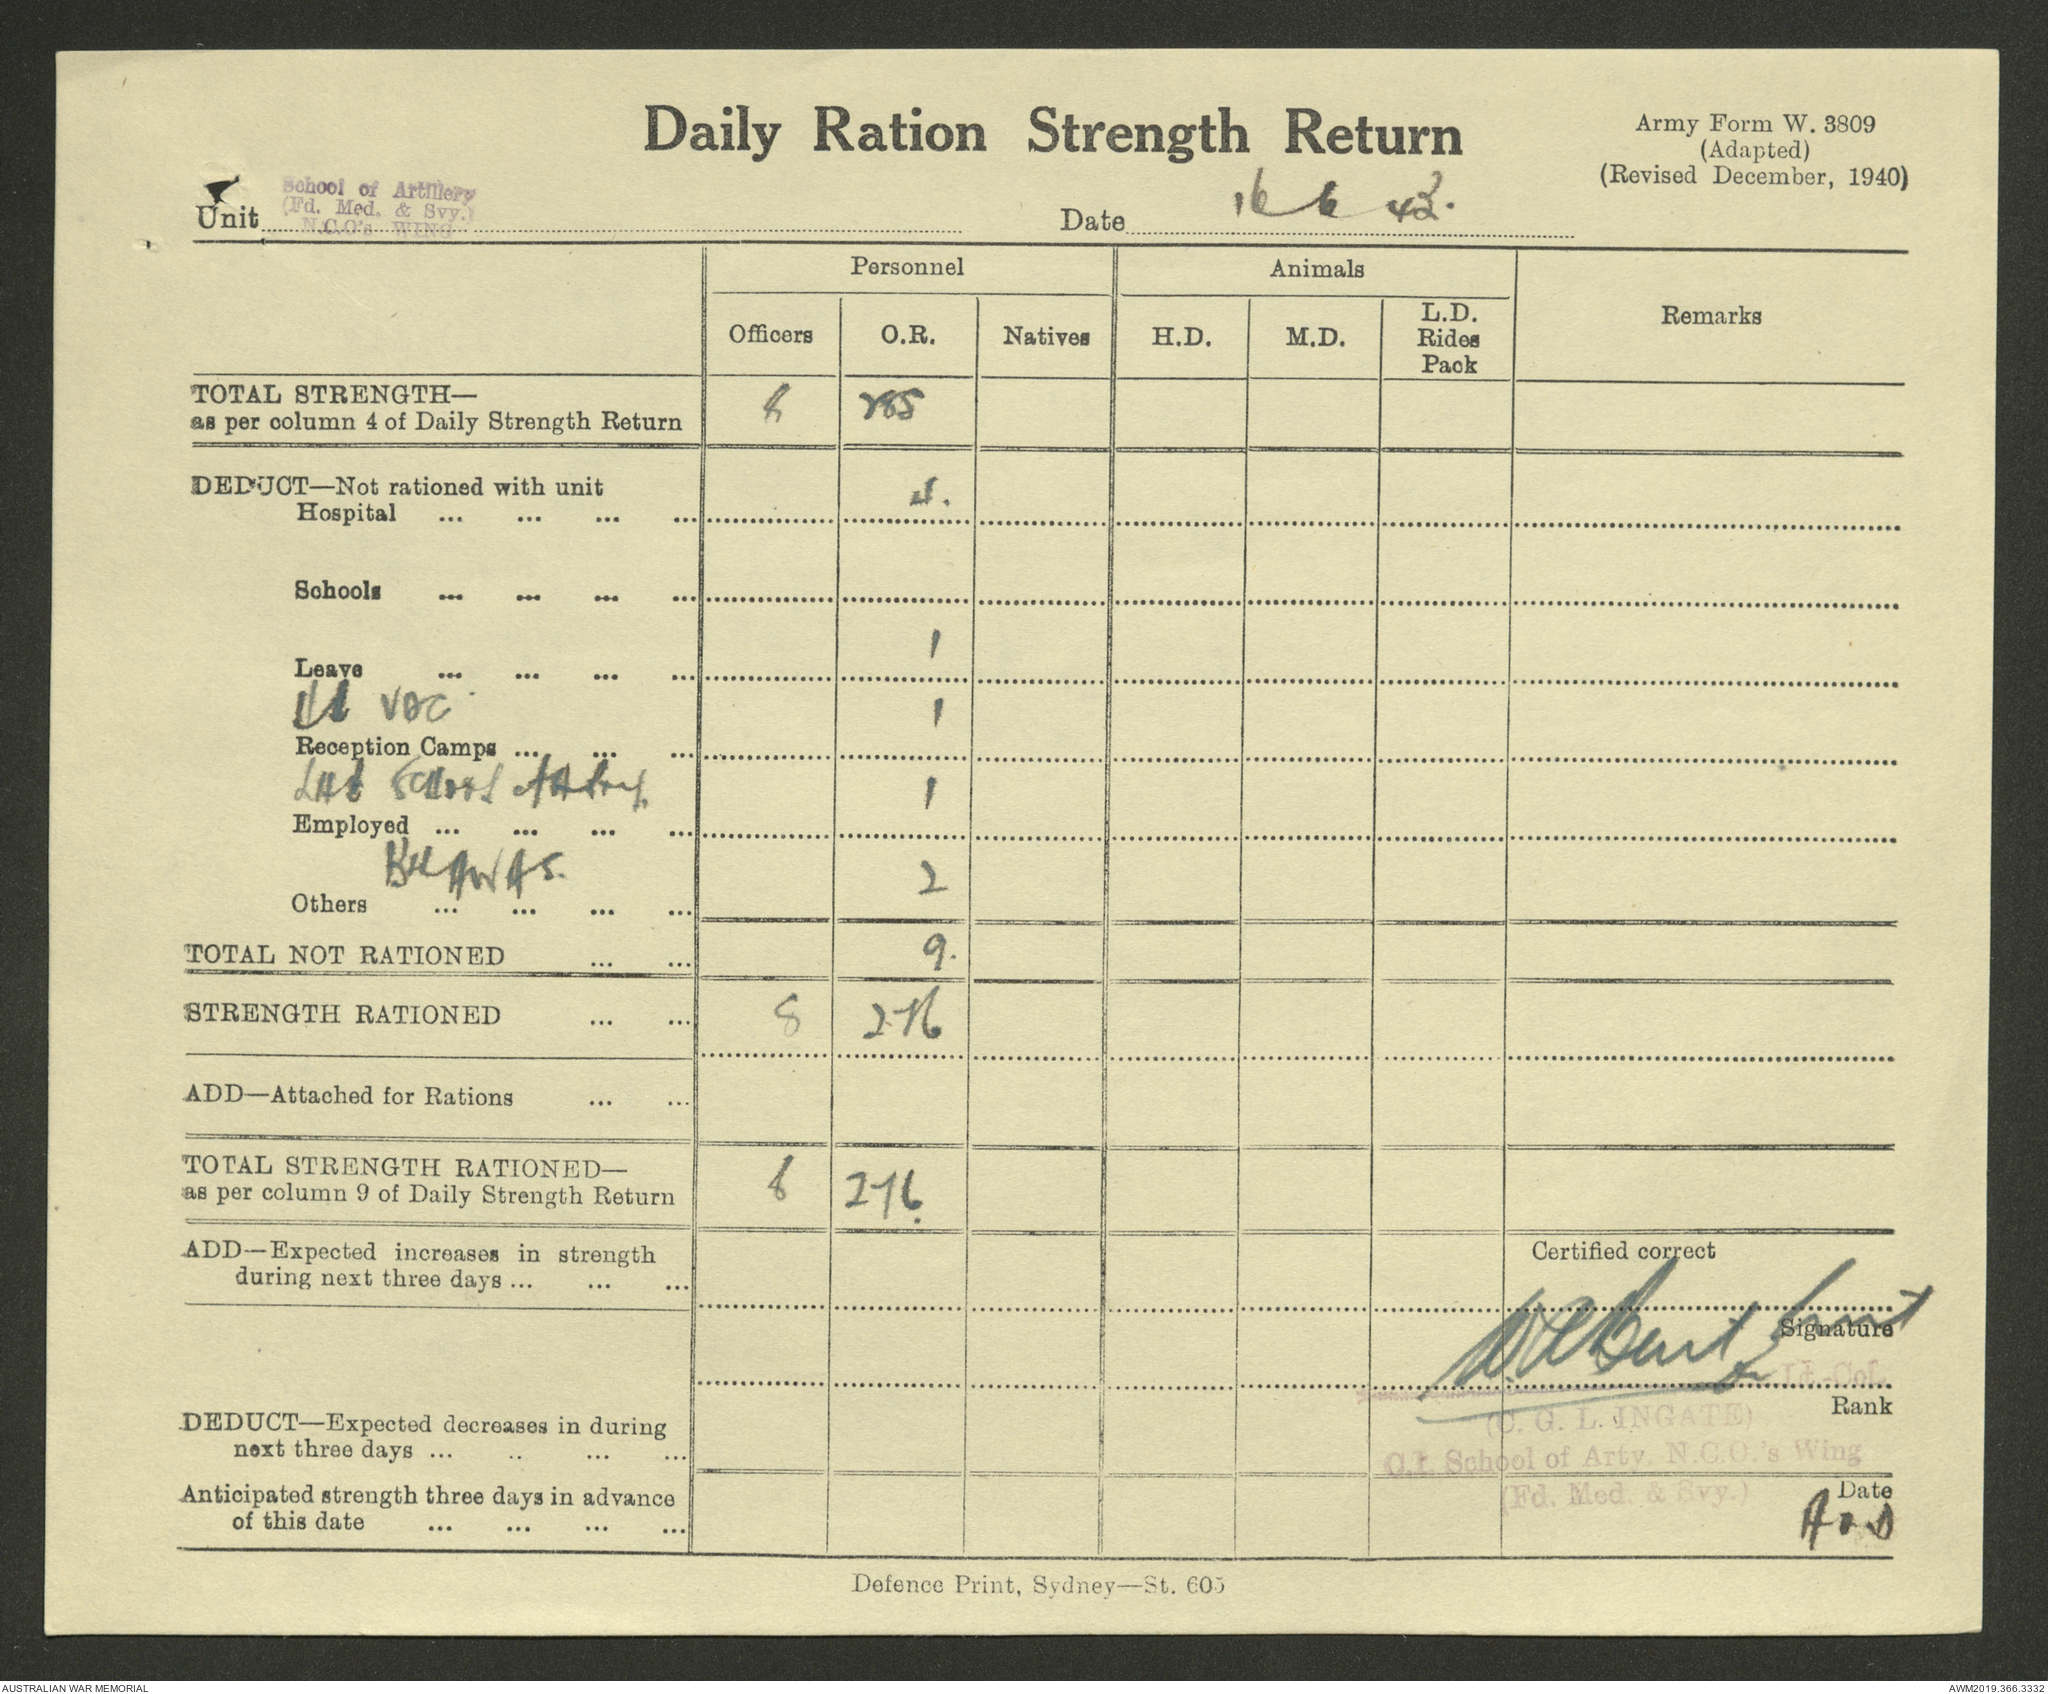 Daily Ration Strength Return
Army Form W. 3809
(Adapted)
(Revised December, 1940)
School of Artillery
(Fd. Med. & Svy.)
N.C.O's WING
Unit
Date 16 6 43.
Personnel
Animals
Remarks
Officers
O.R.
Natives
H.D.
M.D.
L.D.
Rides
Pack
TOTAL STRENGTH—
as per column 4 of Daily Strength Return 8 285
DEDUCT—Not rationed with unit
Hospital ... ... ... ... 4.
Schools ... ... ... ...
Leave ... ... ... ... 1
VDC
Reception Camps ... ... ... 1
LHQ School
Employed ... ... ... ... 1
AWAS.
Others ... ... ... ... 2
TOTAL NOT RATIONED ... ... 9.
STRENGTH RATIONED ... ... 8 276
ADD—Attached for Rations ... ...
TOTAL STRENGTH RATIONED—
as per column 9 of Daily Strength Return 8 276.
ADD—Expected increases in strength
during next three days ... ... ...
Certified correct
Signature
Lt.-Col.
Rank
(C. G. L. INGATE)
C.I. School of Arty. N.C.O.'s Wing
(Fd. Med. & Svy.)
DEDUCT—Expected decreases in during
next three days ... .. ... ...
Anticipated strength three days in advance
of this date ... ... ... ...
Date
Defence Print, Sydney—St. 605
AUSTRALIAN WAR MEMORIAL
AWM2019.366.3332